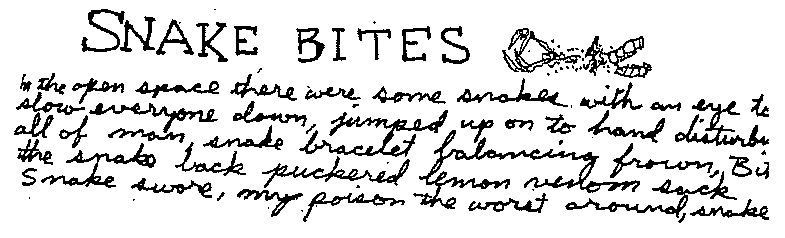 SNAKE BITES
in the open space there were some snakes with an eye to
slow everyone down, jumped up on to hand disturb
all of man, snake bracelet balancing frown, Bit
the snake back puckered lemon venom suck
Snake swore, my poison the worst around, snake